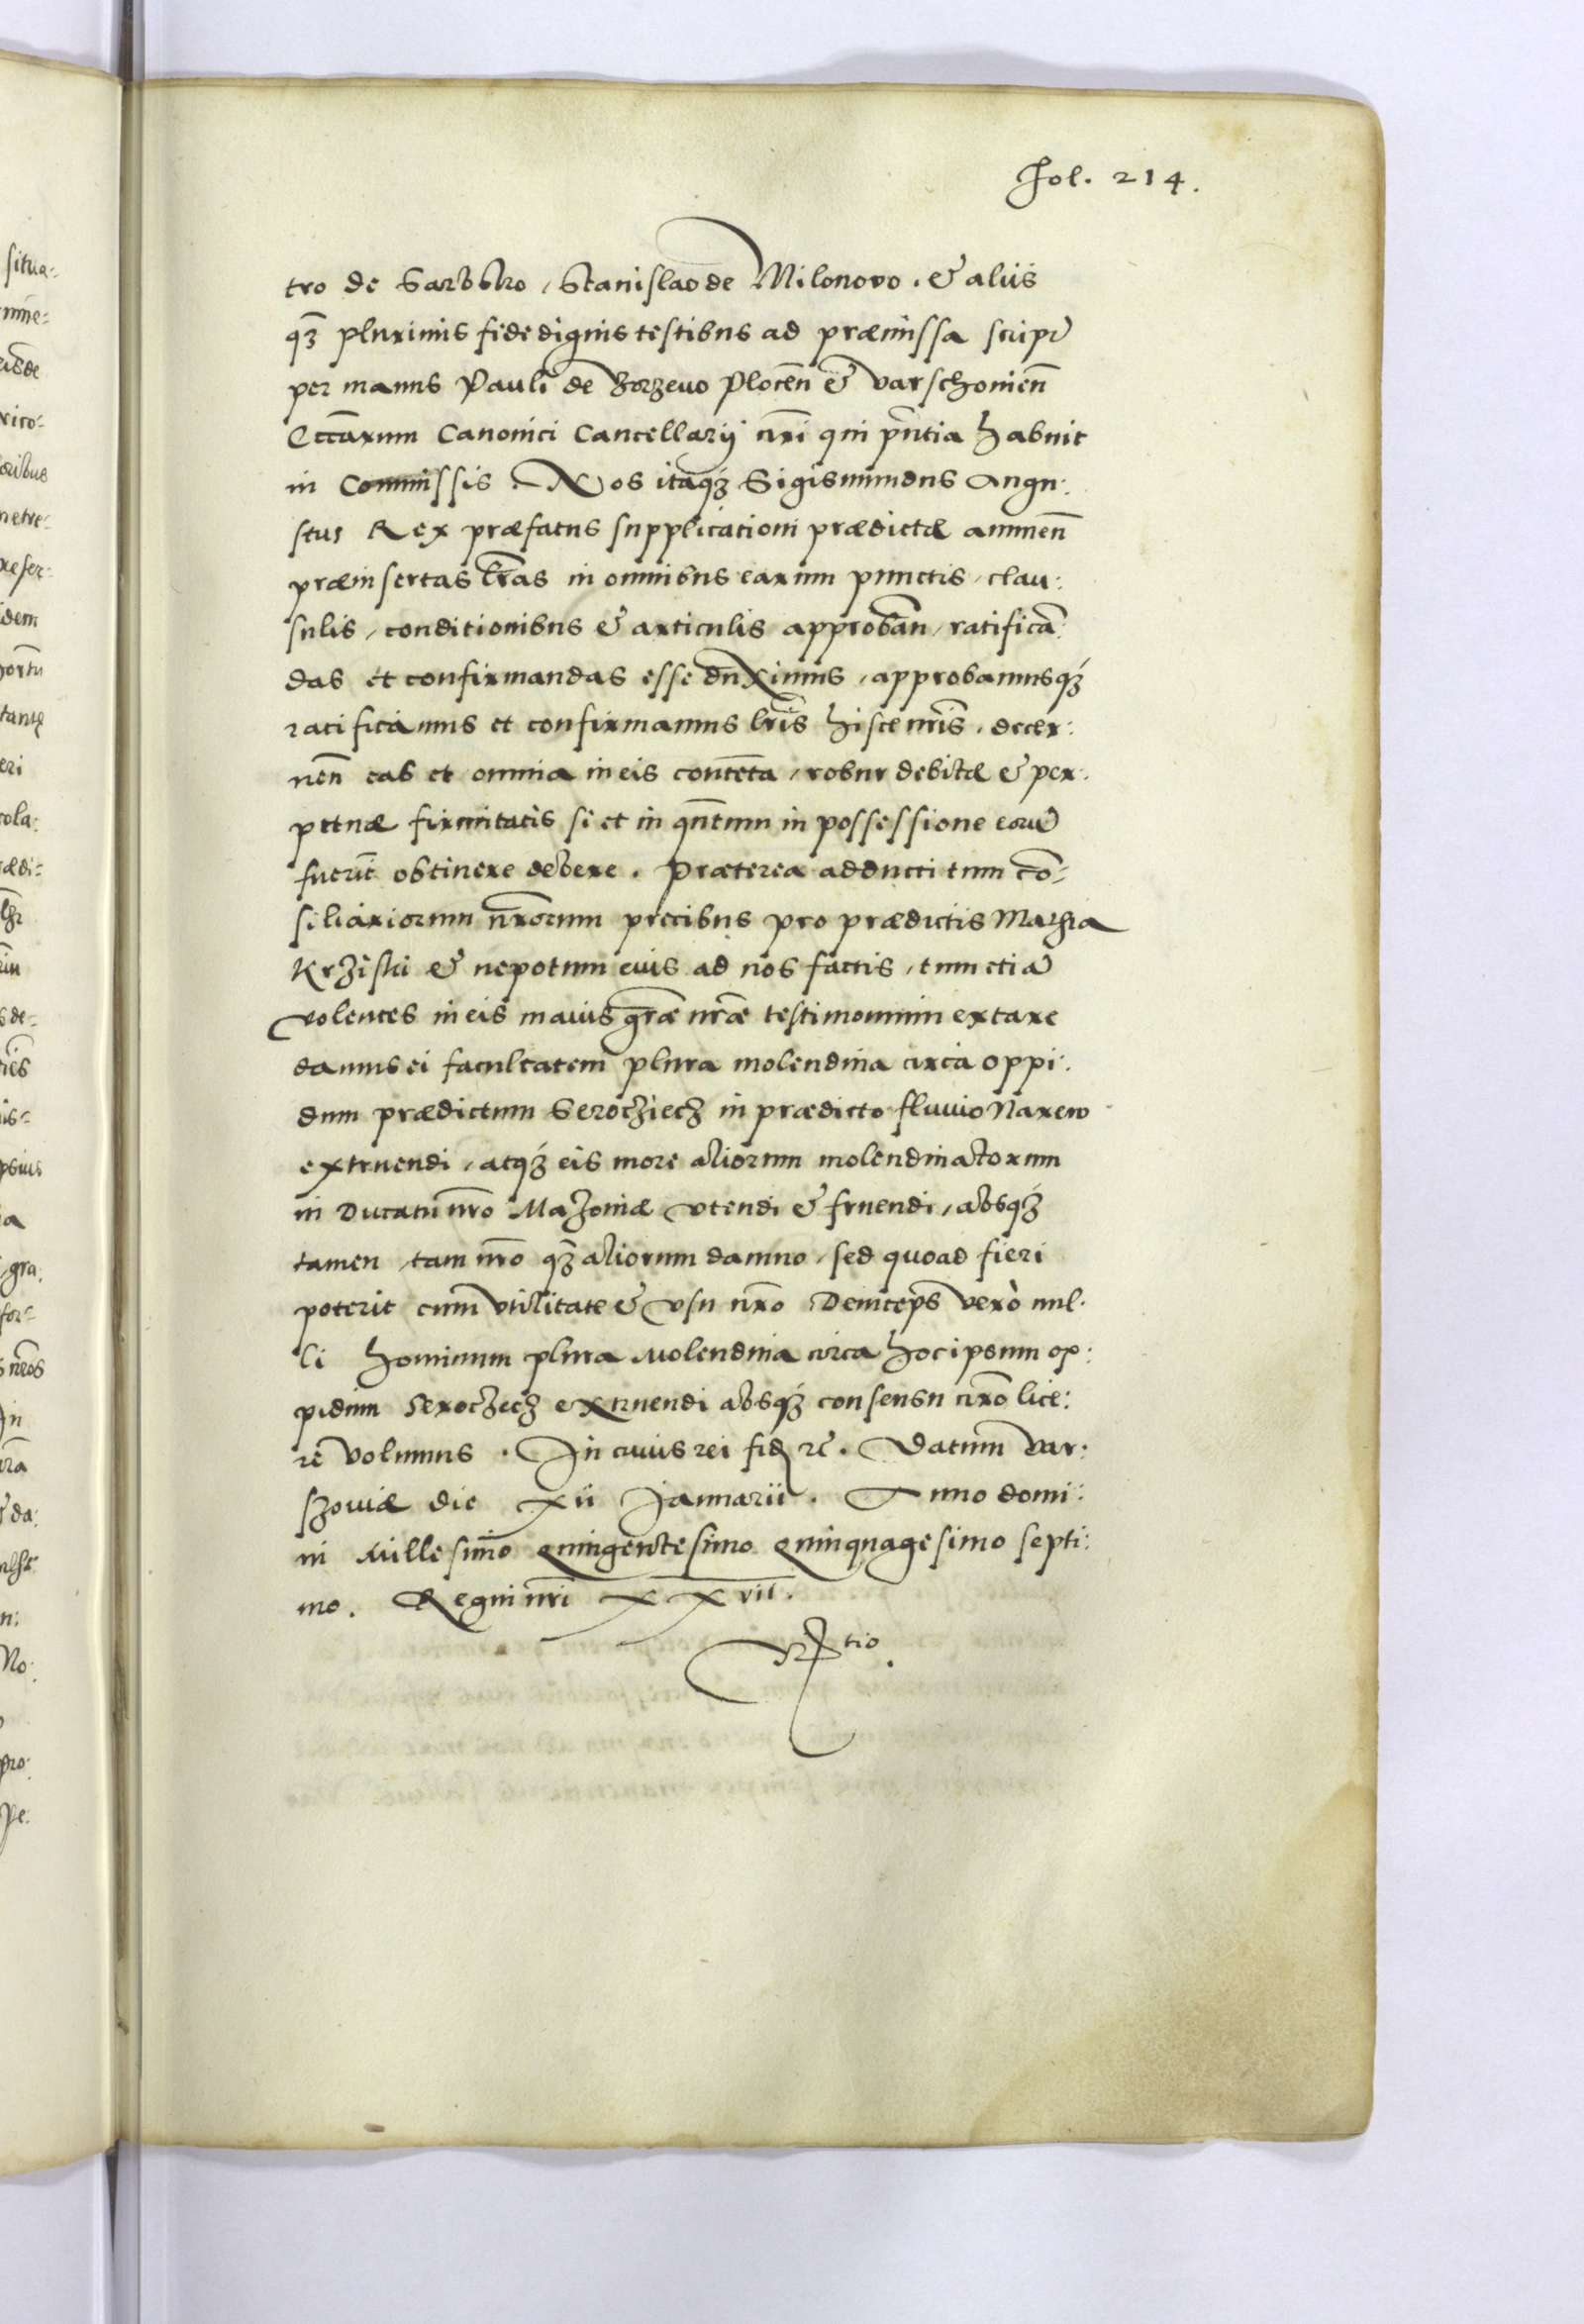 Fol. 214.
tro de Sarbskro, Stanislao de Milonovo. & aliis
qꝫ plurimis fidedignis testibus ad præmissa
per manus Pauli de Borzevo Plocen̄ & varschovien̄
Eccār̃um Canonici Cancellarij nr̄i qui pn̄tia habuit
in Commissis. Nos itaqꝫ Sigismundus Augu:
stus Rex præfatus supplicationi prædictæ annuen̄
præinsertas lr̄as in omnibus earum punctis, clau:
sulis, conditionibus & articulis approban̄, ratificā:
das et confirmandas esse duximus, approbamusqꝫ
ratificamus et confirmamus lr̄is hisce nr̄is. decer:
nen̄ eas et omnia in eis contēta, robur debitæ & per:
petuæ firmitatis si et in qn̄tum in possessione eorū
fuerīt obtinere debere. Præterea adducti tum cō:
siliariorum nr̄orum precibus pro prædictis Mathia
Krziski & nepotum eius ad nos factis, tum etiā
volentes in eis maius gr̄æ nr̄æ testimonium extare
damus ei facultatem plura molendina circa oppi:
dum prædictum Serocziech in prædicto fluvio Narew
extruendi, atqꝫ eis more aliorum molendinatorum
in Ducatu nr̄o Mazoviæ vtendi & fruendi, absqꝫ
tamen, tam nr̄o qꝫ aliorum damno, sed quoad fieri
poterit cum vtilitate & vsu nr̄o Deincep̄s verò nul:
li hominum plura Molendina circa hoc ipsum op:
pidum Seroczech extruendi absqꝫ consensu nr̄o lice:
re volumus. In cuius rei fid rc̄. Datum var:
szoviæ die xii Januarii. Anno domi:
ni Millesimo Quingentesimo Quinquagesimo septi:
mo. Regni nr̄i xxvii.
Rtio.